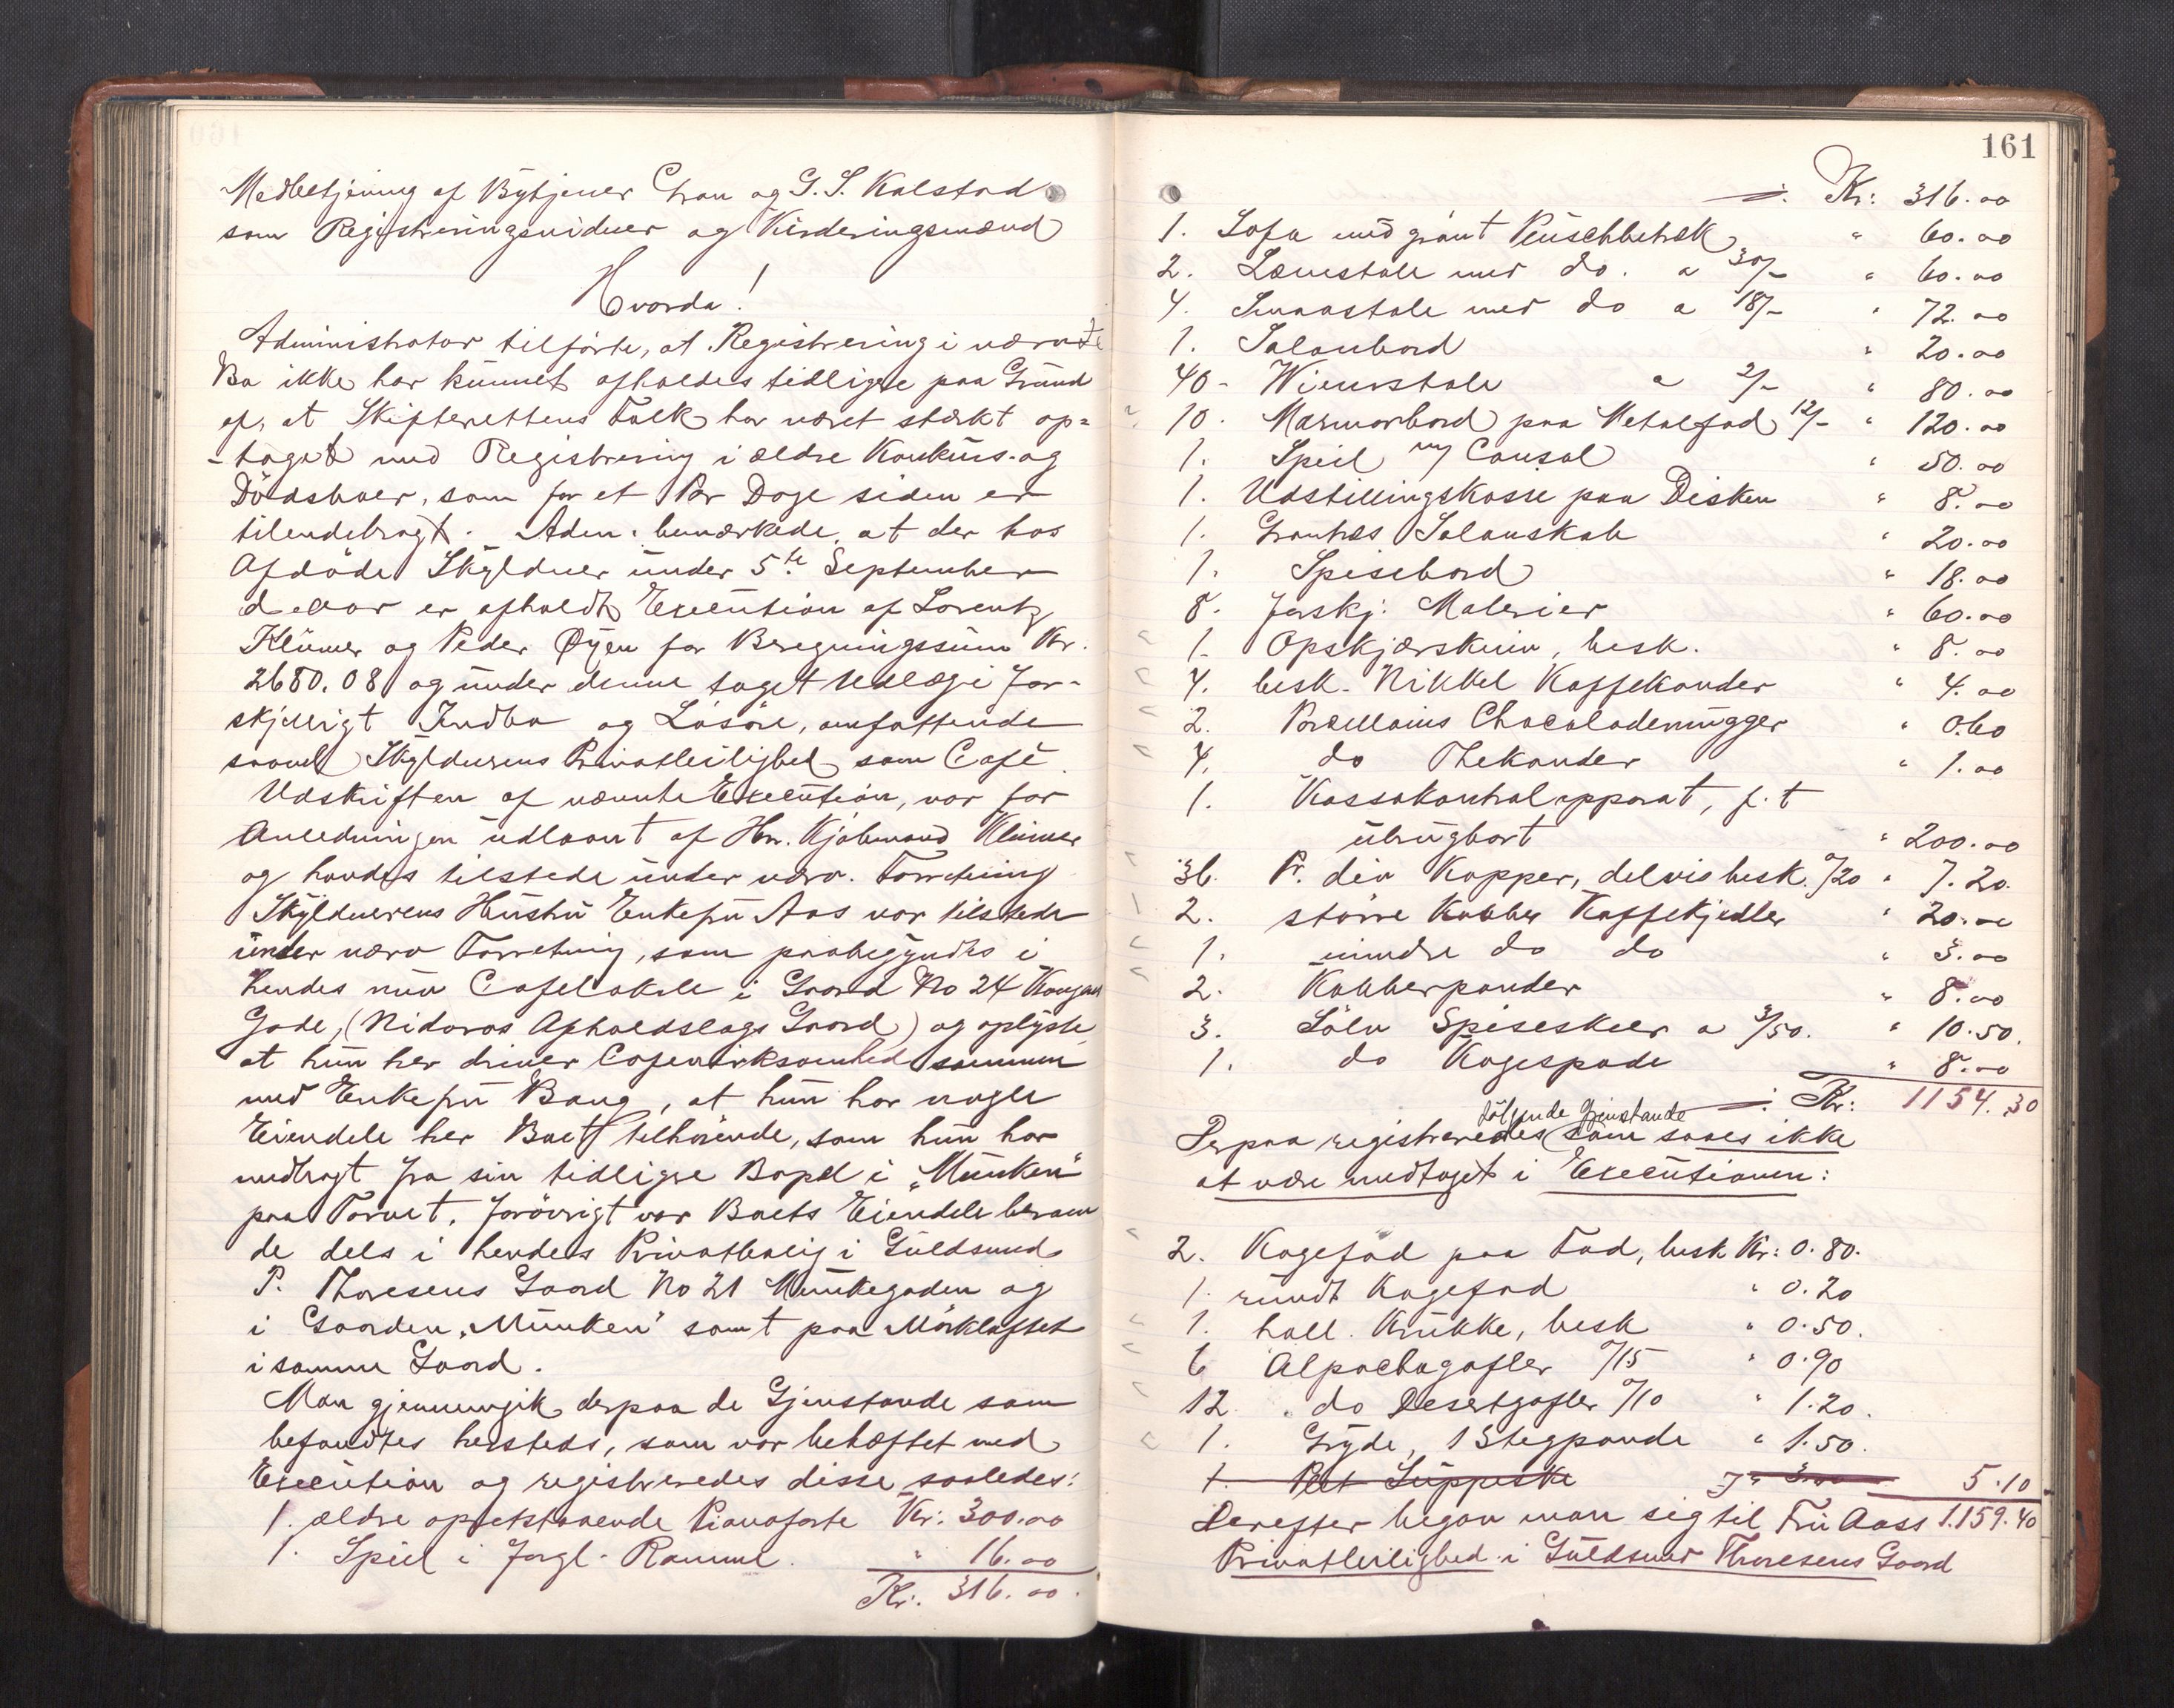 Medbetjening af Bytjener Chran og G. S. Kalstad
som Registreringsvidner og Vurderingsmænd
Hvorda!
Administrator tilførte, at Registrering i nævnte
Bo ikke har kunnet afholdes tidligere paa Grund
af, at Skifterettens Folk har været stærkt op=
-taget med Registrering i ældre Konkurs- og
Dødsboer, som for et Par Dage siden er
tilendebragt. Adm. bemærkede, at der hos
Afdøde Skyldner under 5te September
d. Aar er afholdt Execution af Lorentz
Klüwer og Peder Øyen for Beregningssum Kr.
2680.08 og under denne taget Udlæg i for-
skjelligt Indbo og Løsøre, omfattende
saavel Skyldnerens Privatleilighed som Café.
Udskriften af nævnte Execution, var for
Anledningen udlaant af Hr. Kjøbmand Klüwer
og havdes tilstede under nærv. Forretning
Skyldnerens Hustru Enkefru Aas var tilstede
under nærv Forretning, som paabegyndtes i
hendes nuv Cafelokale i Gaard No 24 Kongens
Gade, (Nidaros Afholdslags Gaard) og oplyste
at hun her driver Cafevirksomhed sammen
med Enkefru Bang, at hun har nogle
Eiendele her Boet tilhørende, som hun har
medbragt fra sin tidligere Bopæl i "Munken"
paa Torvet. Forøvrigt var Boets Eiendele beroen
de dels i hendes Privatbolig i Guldsmed
P. Thoresens Gaard No 21 Munkegaden og
i Gaarden "Munken" samt paa Mørkloftet
i samme Gaard.
Man gjennemgik derpaa de Gjenstande som
befandtes hersteds, som var behæftet med
Execution og registreredes disse saaledes:
1. ældre opretstaaende Pianoforte Kr: 300.00
1. Speil i forgl. Ramme. " 16.00
Kr. 316.00.
161
Kr: 316.00
1. Sofa med grønt Pluschbetræk " 60.00
2. Lænestole med do. a 30/- " 60.00
4. Smaastole med do a 18/- " 72.00
1. Salonbord " 20.00
40- Wienerstole a 2/- " 80.00
10. Marmorbord paa Metalfod 12/- " 120.00
1. Speil m/ Consol " 50.00
1. Udstillingskasse paa Disken " 8.00
1. Grantræs Salonskab " 20.00
1. Spisebord " 18.00
8. forskj. Malerier " 60.00
1. Opskjærskniv, besk. " 8.00
4. besk. Nikkel Kaffekander " 4.00
2. Porcellains Chocolademugger " 0.60
4. do Thekander " 1.00
1. Kassakontrolapparat, f. t
ubrugbart " 200.00
36. Pr. div Kopper, delvis besk. 0/20 " 7.20.
2. større Kobber Kaffekjedler " 20.00
1. mindre do do " 3.00
2. Kobberpander " 8.00
3. Sølv Spiseskeer a 3/50. " 10.50.
1. do Kagespade " 8.00
Kr: 1154.30
følgende Gjenstande
Derpaa registreredes som saaes ikke
at være medtaget i Executionen:
2. Kagefad paa Fod, besk Kr: 0.80.
1. rundt Kagefad " 0.20
1. holl. Krukke, besk " 0.50.
6 Alpaccagafler 0/15 " 0.90
12 " do Desertgafler 0/10 " 1.20.
1. Gryde, 1 Stegpande " 1.50.
1. Plet Suppeske 5.10
Derefter begav man sig til Fru Aass 1.159.40
Privatleilighed i Guldsmed Thoresens Gaard